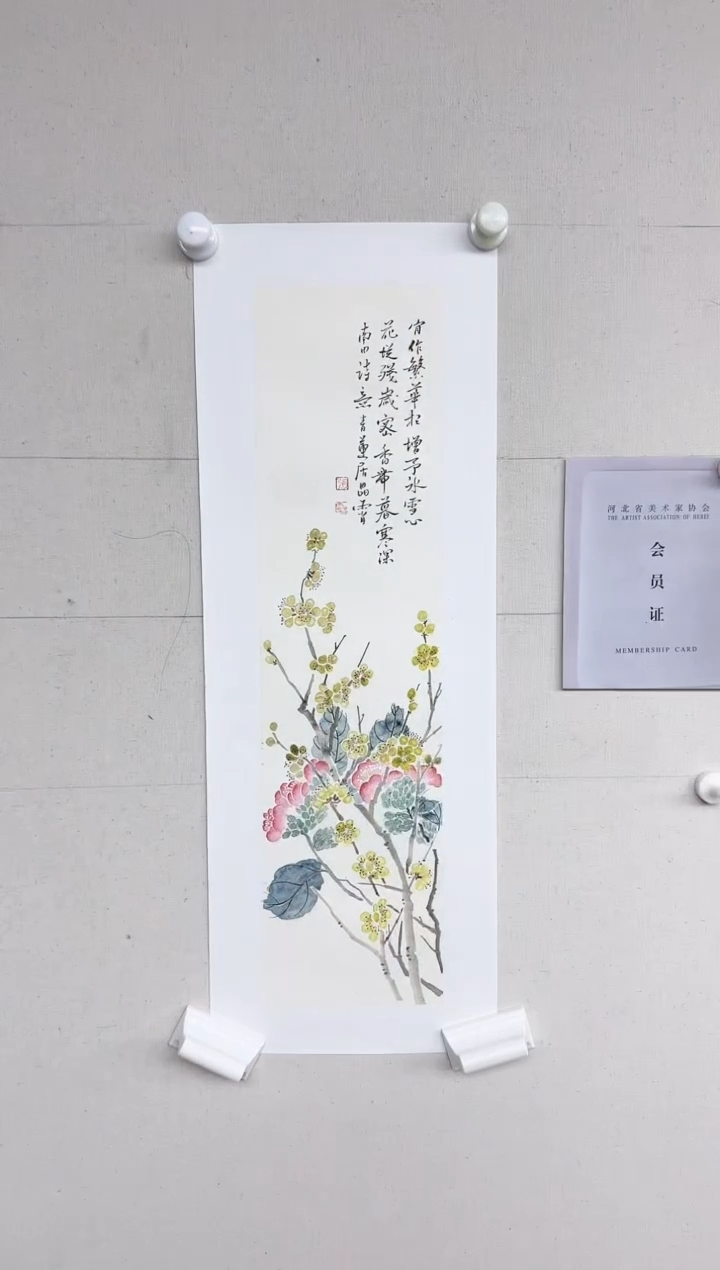 作繁華相增予冰雪心
花從殘歲密香帶暮寒深
南田詩意青居晶霄
河北省美术家协会
THE ARTIST ASSOCIATION OF HEBEI
会
员
证
MEMBERSHIP CARD